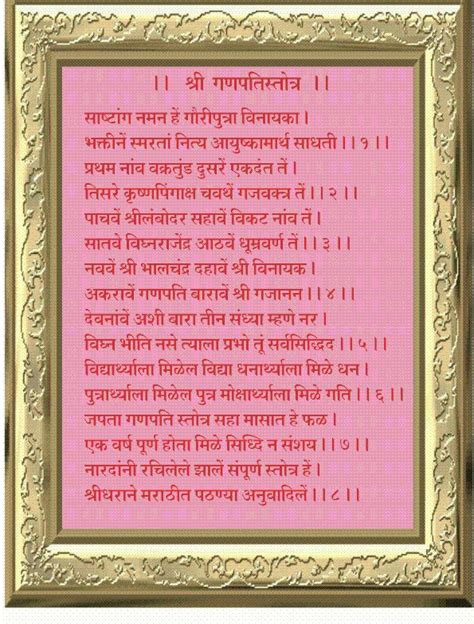 ।। श्री गणपतिस्तोत्र ।।
साष्टांग नमन हें गौरीपुत्रा विनायका ।
भक्तीनें स्मरतां नित्य आयुष्कामार्थ साधती ।। १ ।।
प्रथम नांव वक्रतुंड दुसरें एकदंत तें ।
तिसरे कृष्णपिंगाक्ष चवथें गजवक्त्र तें ।। २ ।।
पाचवें श्रीलंबोदर सहावें विकट नांव तें ।
सातवे विघ्नराजेंद्र आठवें धूम्रवर्ण तें ।। ३ ।।
नववें श्री भालचंद्र दहावें श्री विनायक ।
अकरावें गणपति बारावें श्री गजानन ।। ४ ।।
देवनांवें अशी बारा तीन संध्या म्हणे नर ।
विघ्न भीति नसे त्याला प्रभो तूं सर्वसिद्धिद ।। ५ ।।
विद्यार्थ्याला मिळेल विद्या धनार्थ्याला मिळे धन ।
पुत्रार्थ्याला मिळेल पुत्र मोक्षार्थ्याला मिळे गति ।। ६ ।।
जपता गणपति स्तोत्र सहा मासात हे फळ ।
एक वर्ष पूर्ण होता मिळे सिध्दि न संशय ।। ७ ।।
नारदांनी रचिलेले झालें संपूर्ण स्तोत्र हें ।
श्रीधराने मराठीत पठण्या अनुवादिलें ।। ८ ।।